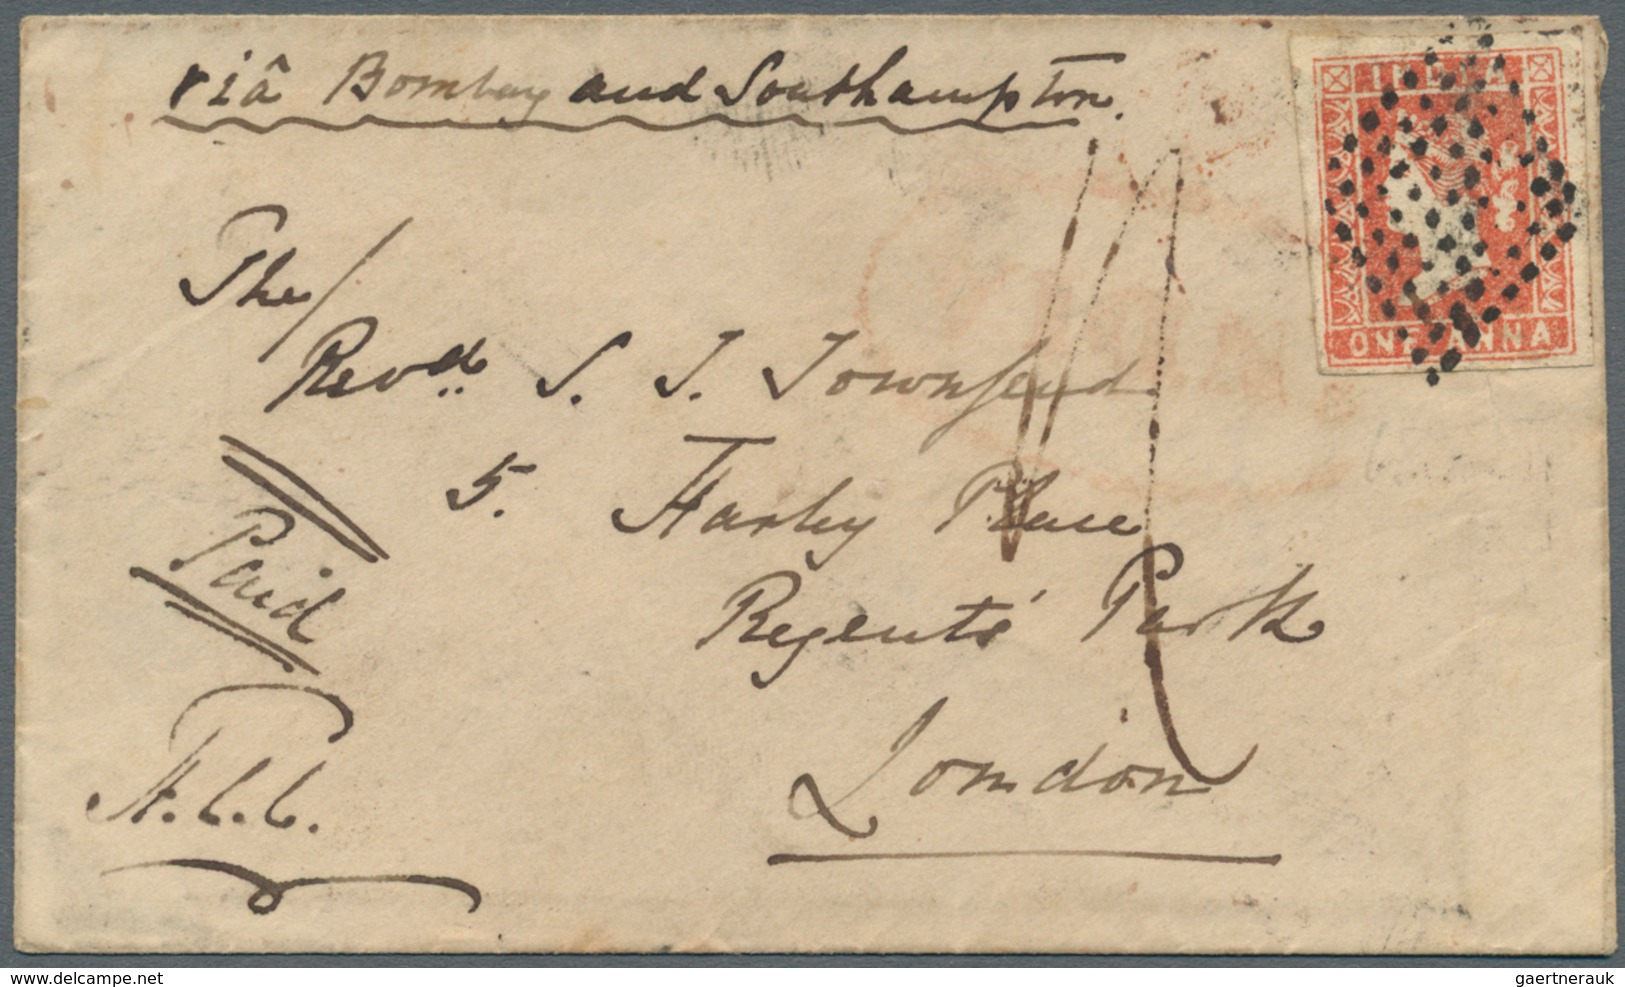 viâ Bombay and Southampton.
INDIA
ONE ANNA
The/
Revd. S. J. Townsend
5. Harley Place
Regent's Park
London
Paid
gaertnerauk
delcampe.net